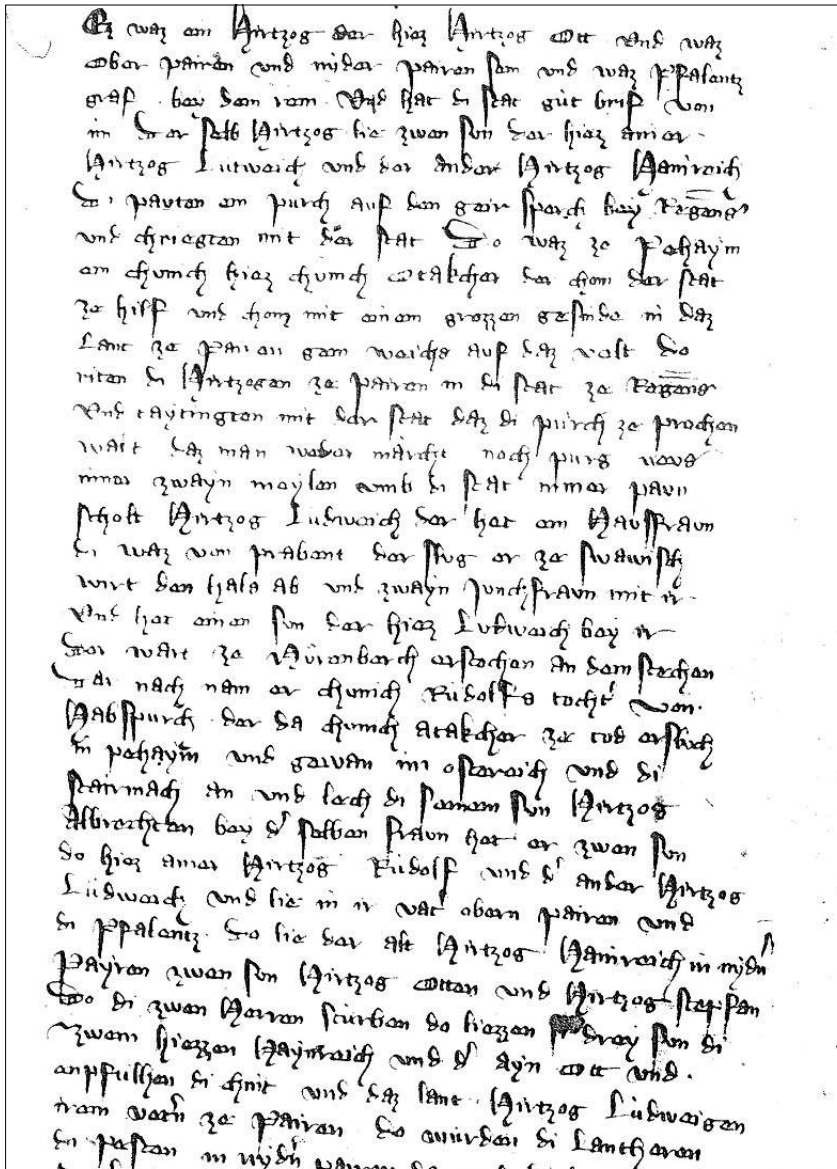 Ez waz ein Hirtzog der hiez Hirtzog Ott Und waz
Ober pairen und nider pairen sein und waz Pfalentz
graf bey dem rein Und hat di stat güt brif von
im Der selb Hirtzog lie zwen sun der hiez ainer
Hirtzog Lutweich und der ander Hirtzog Hainreich
Di pauten ein purch auf den geir sperch bey Regens
und chriegten mit der stat Do waz ze Pehaym
ein chunich hiez chunich Otakcher der chom der stat
ze hilf und chom mit einem grozzen gesinde in daz
Lant ze Pairen gein weichs auf daz velt do
riten di Hirtzogen ze pairen in di stat ze Regens
Und taytingten mit der stat daz di pürch ze prochen
wart daz man weder märcht noch purg
inner zwayn meylen umb di stat nimer pavn
scholt Hirtzog Ludweich der het ein Hausfravn
di waz von prabent der slug er ze swawisch
wirt den hals ab und zwayn Junchfravn mit ir
Und het einen sun der hiez Ludweich bey ir
Der wart ze Nürenberch erstochen an dem stechen
Dar nach nam er chunich Rüdolfs tocht von
Habspurch der da chunich atakcher ze tod erslüch
in pehaym und gewan im ostereich und di
stairmach an und lech di seinem sun Hirtzog
Albrechten bey d selben fravn het er zwen sun
do hiez ainer Hirtzog Rüdolf und d ander Hirtzog
Lüdweich und lie in ir vat obern pairen und
di Pfalentz Do lie der alt Hirtzog Hainreich in nydn
Payren zwen sun Hirtzog Otten und Hirtzog steffan
Do di zwen Herren stürben do liezzen drey sun di
zwen hiezzen Haynreich und d ayn Ott und
enpfulhen di chint und daz lant Hirtzog Lüdweigen
irem vetn ze Pairen do würden di Lantheren
di pesten in nydn pairen